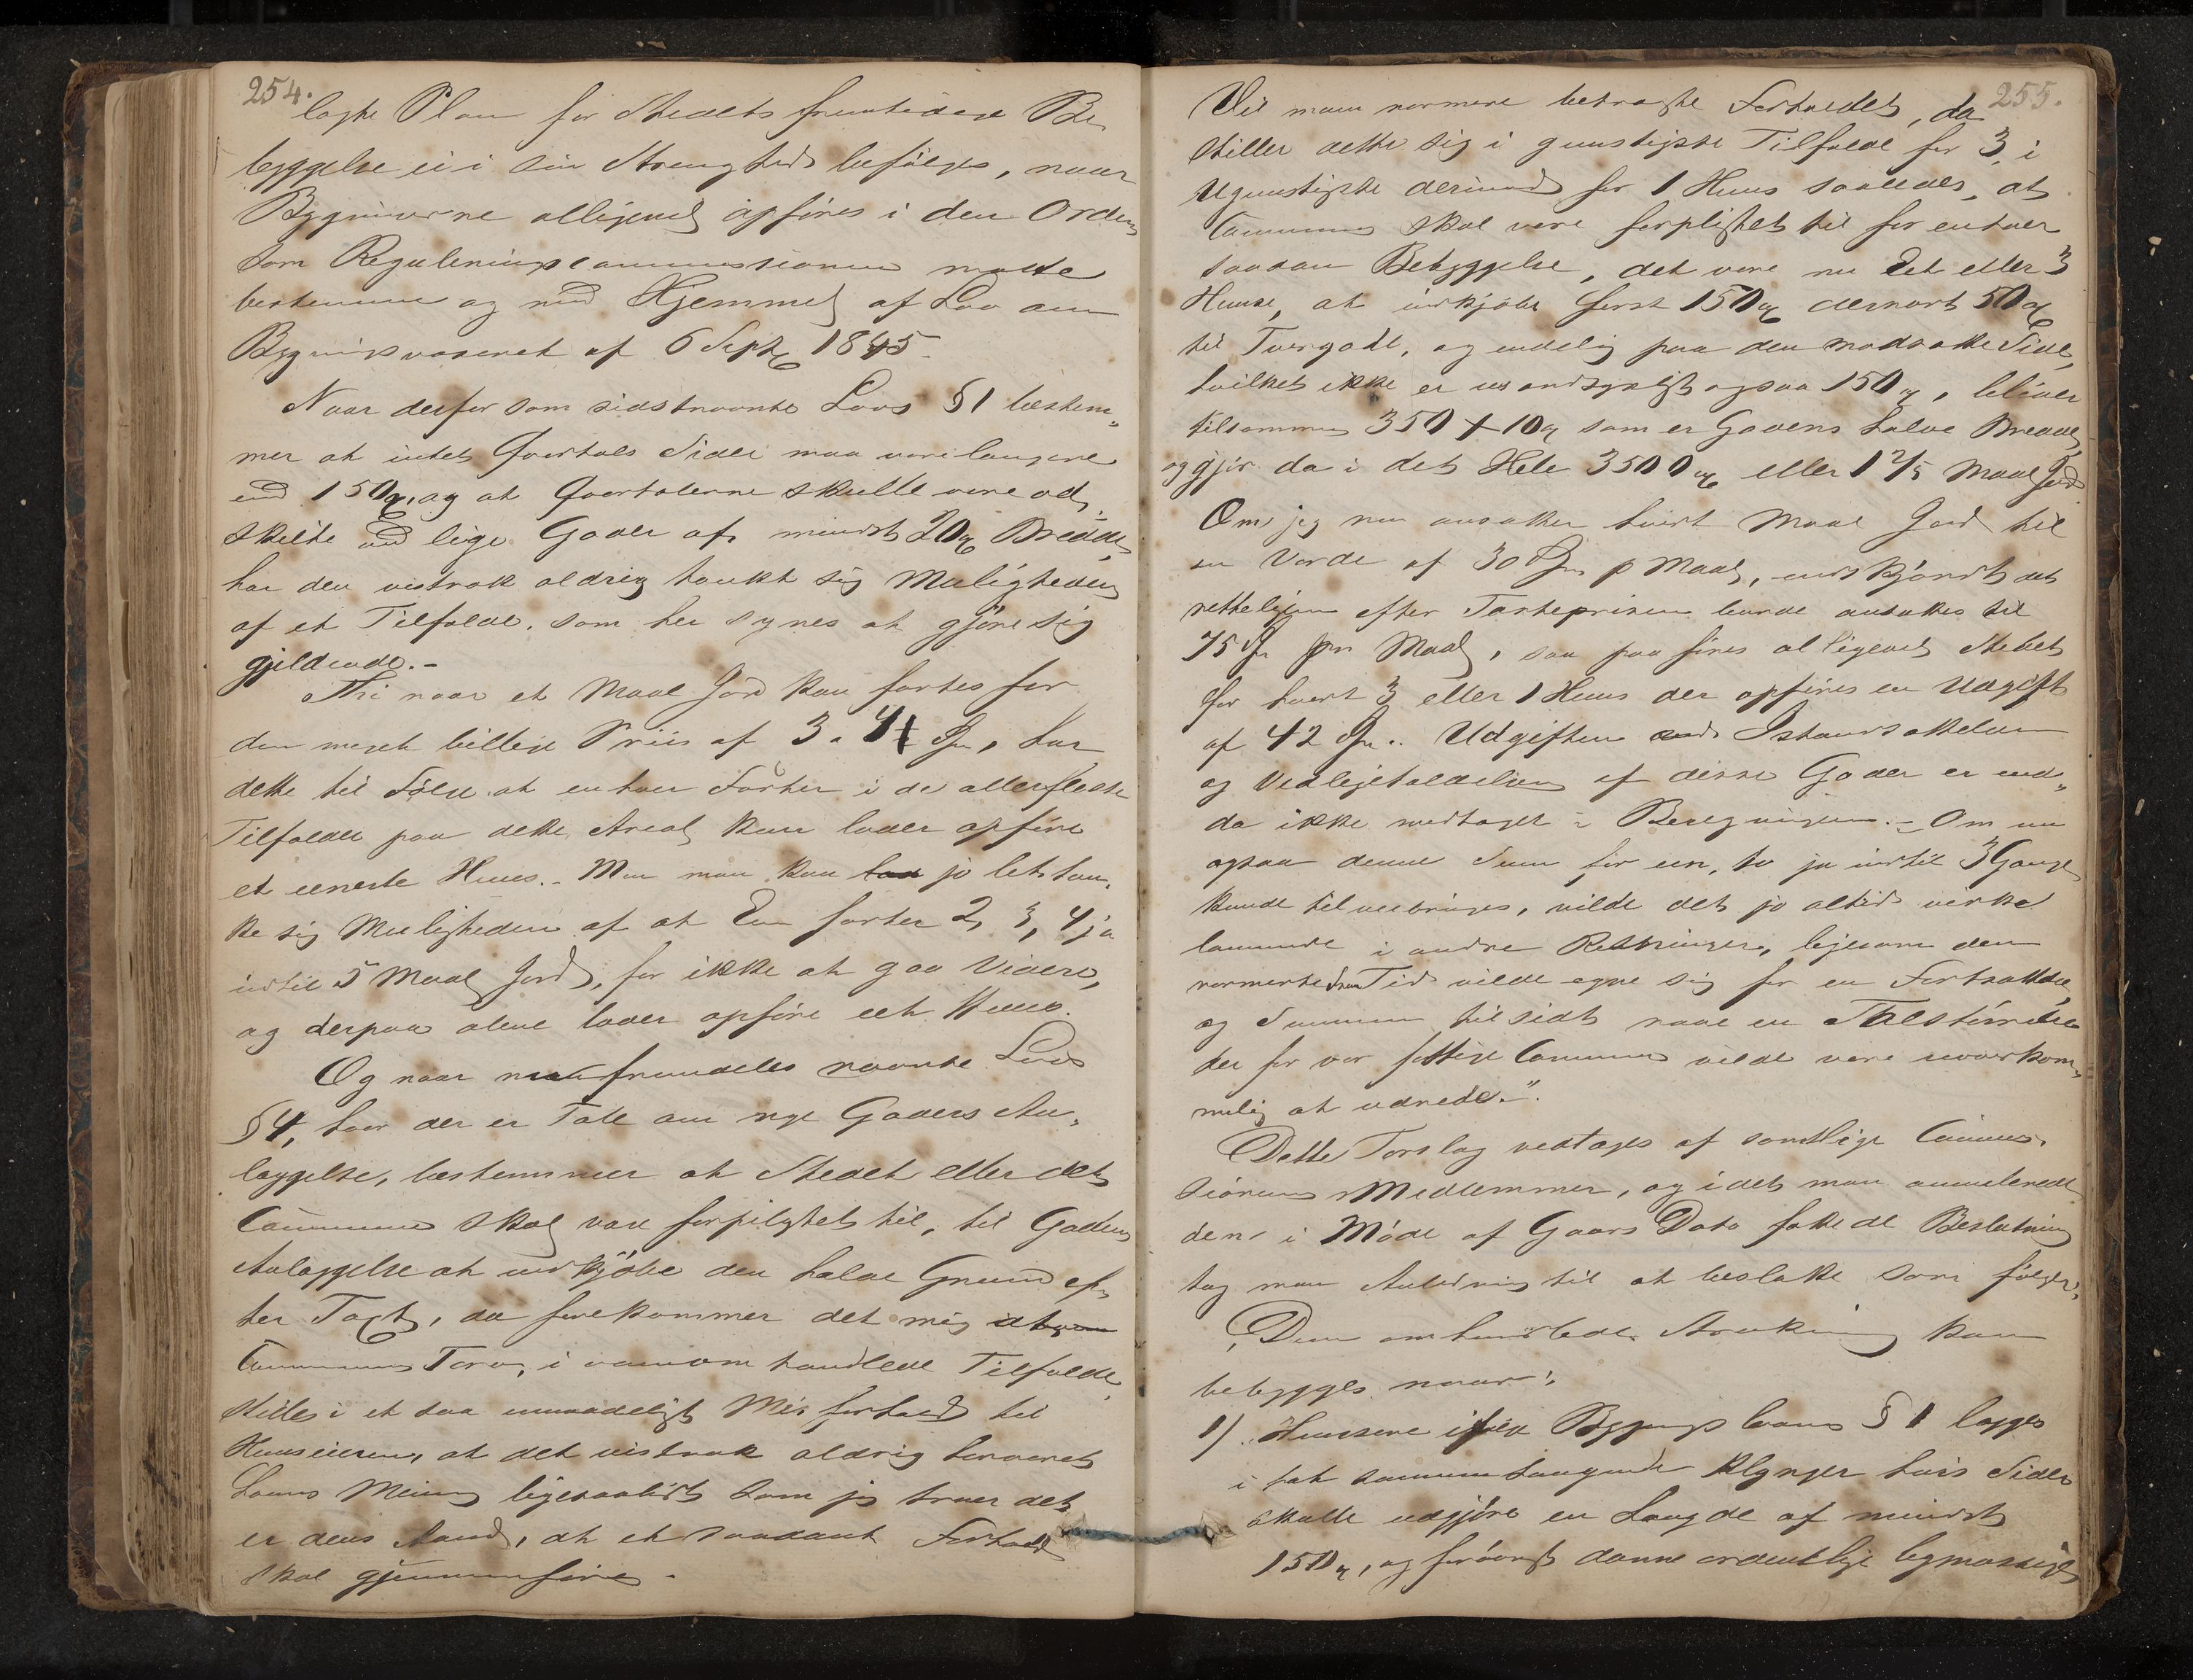 254.
lagte Plan for Stedets fremtidige Be
byggelse ei i sin Strenghed befölges, naar
Bygningerne alligevel opföres i den Orden
som Reguleringscommissionen maatte
bestemme og med Hjemmel af Lov om
Bygningsvæsenet af 6 Septb 1845.
Naar derfor som sidstnævnte Lovs § 1 bestem„
mer at intet Qvartals Sider maa være længere
end 150 al, og at Qvartalerne skulle være ad„
skilte ved lige Gader af mindst 20 al Bredde,
har den vistnok aldrig tænkt sig Muligheden
af et Tilfælde, som her synes at gjöre sig
gjeldende. –
Thi naar et Maal Jord kan fæstes for
den meget billige Priis af 3 a 4 , har
dette til Fölge at enhver Fæster i de allerfleste
Tilfælde paa dette Areal kun lader opföre
et eneste Huus. – Men man kan jo let tæn„
ke sig Muligheden af at Een fæster 2, 3, 4 ja
indtil 5 Maal Jord, for ikke at gaa videre,
og derpaa alene lader opföre eet Huus.
Og naar fremdeles nævnte Lovs
§ 4, hvor der er Tale om nye Gaders An„
læggelse, bestemmer at Stedet eller det
Communen skal være forpligtet til, til Gadens
Anlæggelse at indkjöbe den halve Grund ef„
ter Taxt, da forekommer det mig
Communens Tarv, i omhandlede Tilfælde,
stilles i et saa umaadeligt Misforhold til
Huuseieren, at det vistnok aldrig har været
Lovens Mening ligesaalidt som jeg troer det
er dens Aand, at et saadant Forhold
skal gjennemföres –
255.
Vil man nærmere betragte Forholdet, da
stiller dette sig i gunstigste Tilfælde for 3, i
ugunstigste derimod for 1 Huus saaledes, at
Communen skal være forpligtet til for enhver
saadan Bebyggelse, det være nu Eet eller 3
Huuse, at indkjöbe först 150 al dernæst 50 al
til Tvergade, og endelig paa den modsatte Side,
hvilket ikke er usandsynligt ogsaa 150 al, bliver
tilsammen 350 + 10 al som er Gadens halve Bredde,
og gjör da i det Hele 3500 al eller 1 2/5 Maal Jord
Om jeg nu ansætter hvert Maal Jord til
en Værdi af 30 p Maal, endskjöndt det
retteligen efter Fæsteprisen burde ansættes til
75 pr Maal, saa paaföres alligevel Stedet
for hvert 3 eller 1 Huus der opföres en Udgift
af 42 . Udgiften ved Istandsættelsen
og Vedligeholdelsen af disse Gader er end„
da ikke medtaget i Beregningen. – Om nu
ogsaa denne Sum for een, to ja indtil 3 Gange
kunde tilveiebringes, vilde det jo altid virke
lammende i andre Retninger, ligesom den
nærmeste Tid vilde egne sig for en Fortsættelse,
og Summen tilsidst naae en Störrelse
der for vor fattige Commune vilde være uoverkom„
melig at udrede.–"
Dette Forslag vedtages af samtlige Commis„
sionens Medlemmer, og idet man annullerede
den i Möde af Gaars Dato fattede Beslutning
tog man Anledning til at beslutte som fölger:
„Den omhandlede Strækning kan
bebygges naar:
1) Husene ifölge Bygningslovens § 1 lægges
i tæt sammenhængende Klynger hvis Sider
skulle udgjöre en Længde af mindst
150 al, og forövrigt danne ordentlige legmæssige